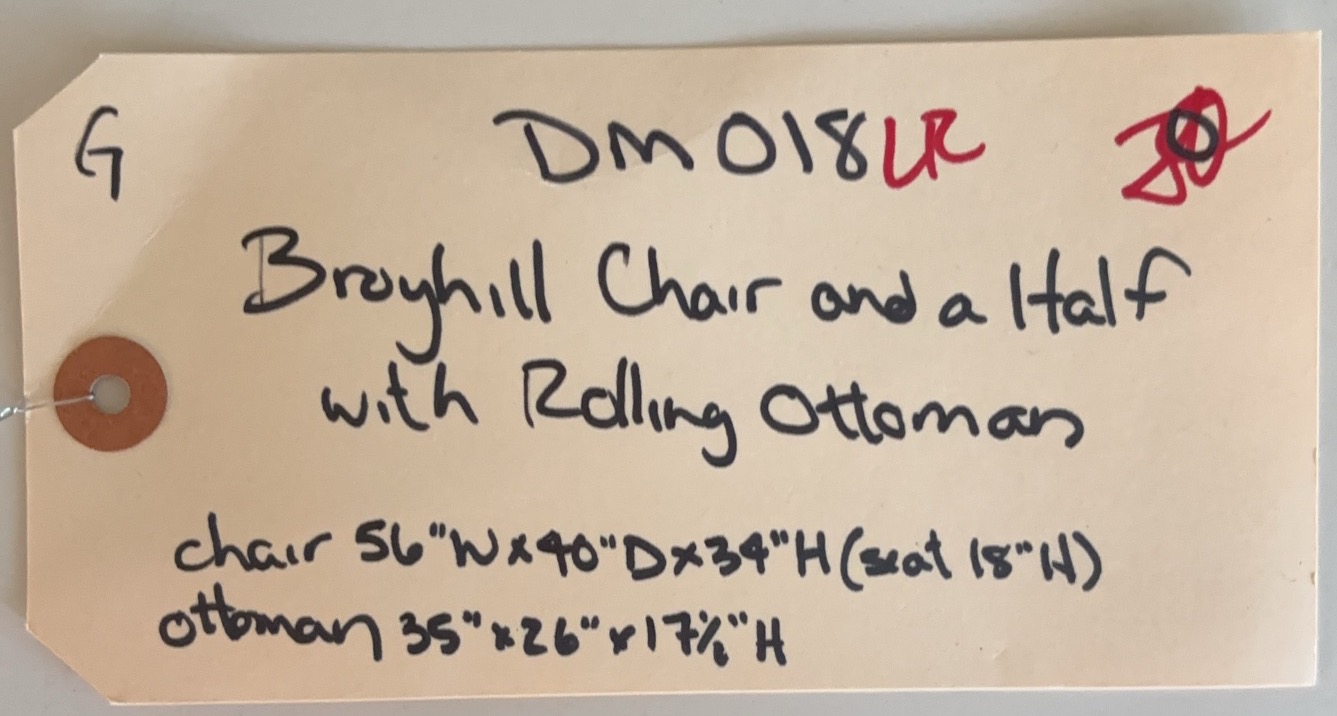 G DM018LR
Broyhill Chair and a Half
with Rolling Ottoman
chair 56"W x 40"D x 34"H (seat 18"H)
ottoman 35" x 26" x 17½"H